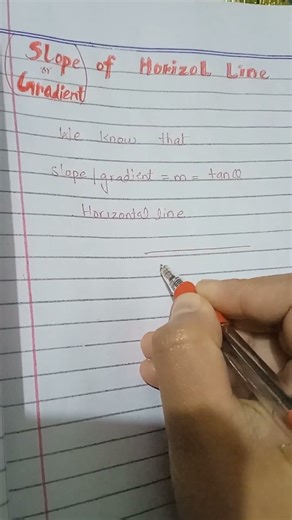 Slope of Horizol Line
or
Gradient
We know that
Slope/gradient = m = tanθ
Horizontel line